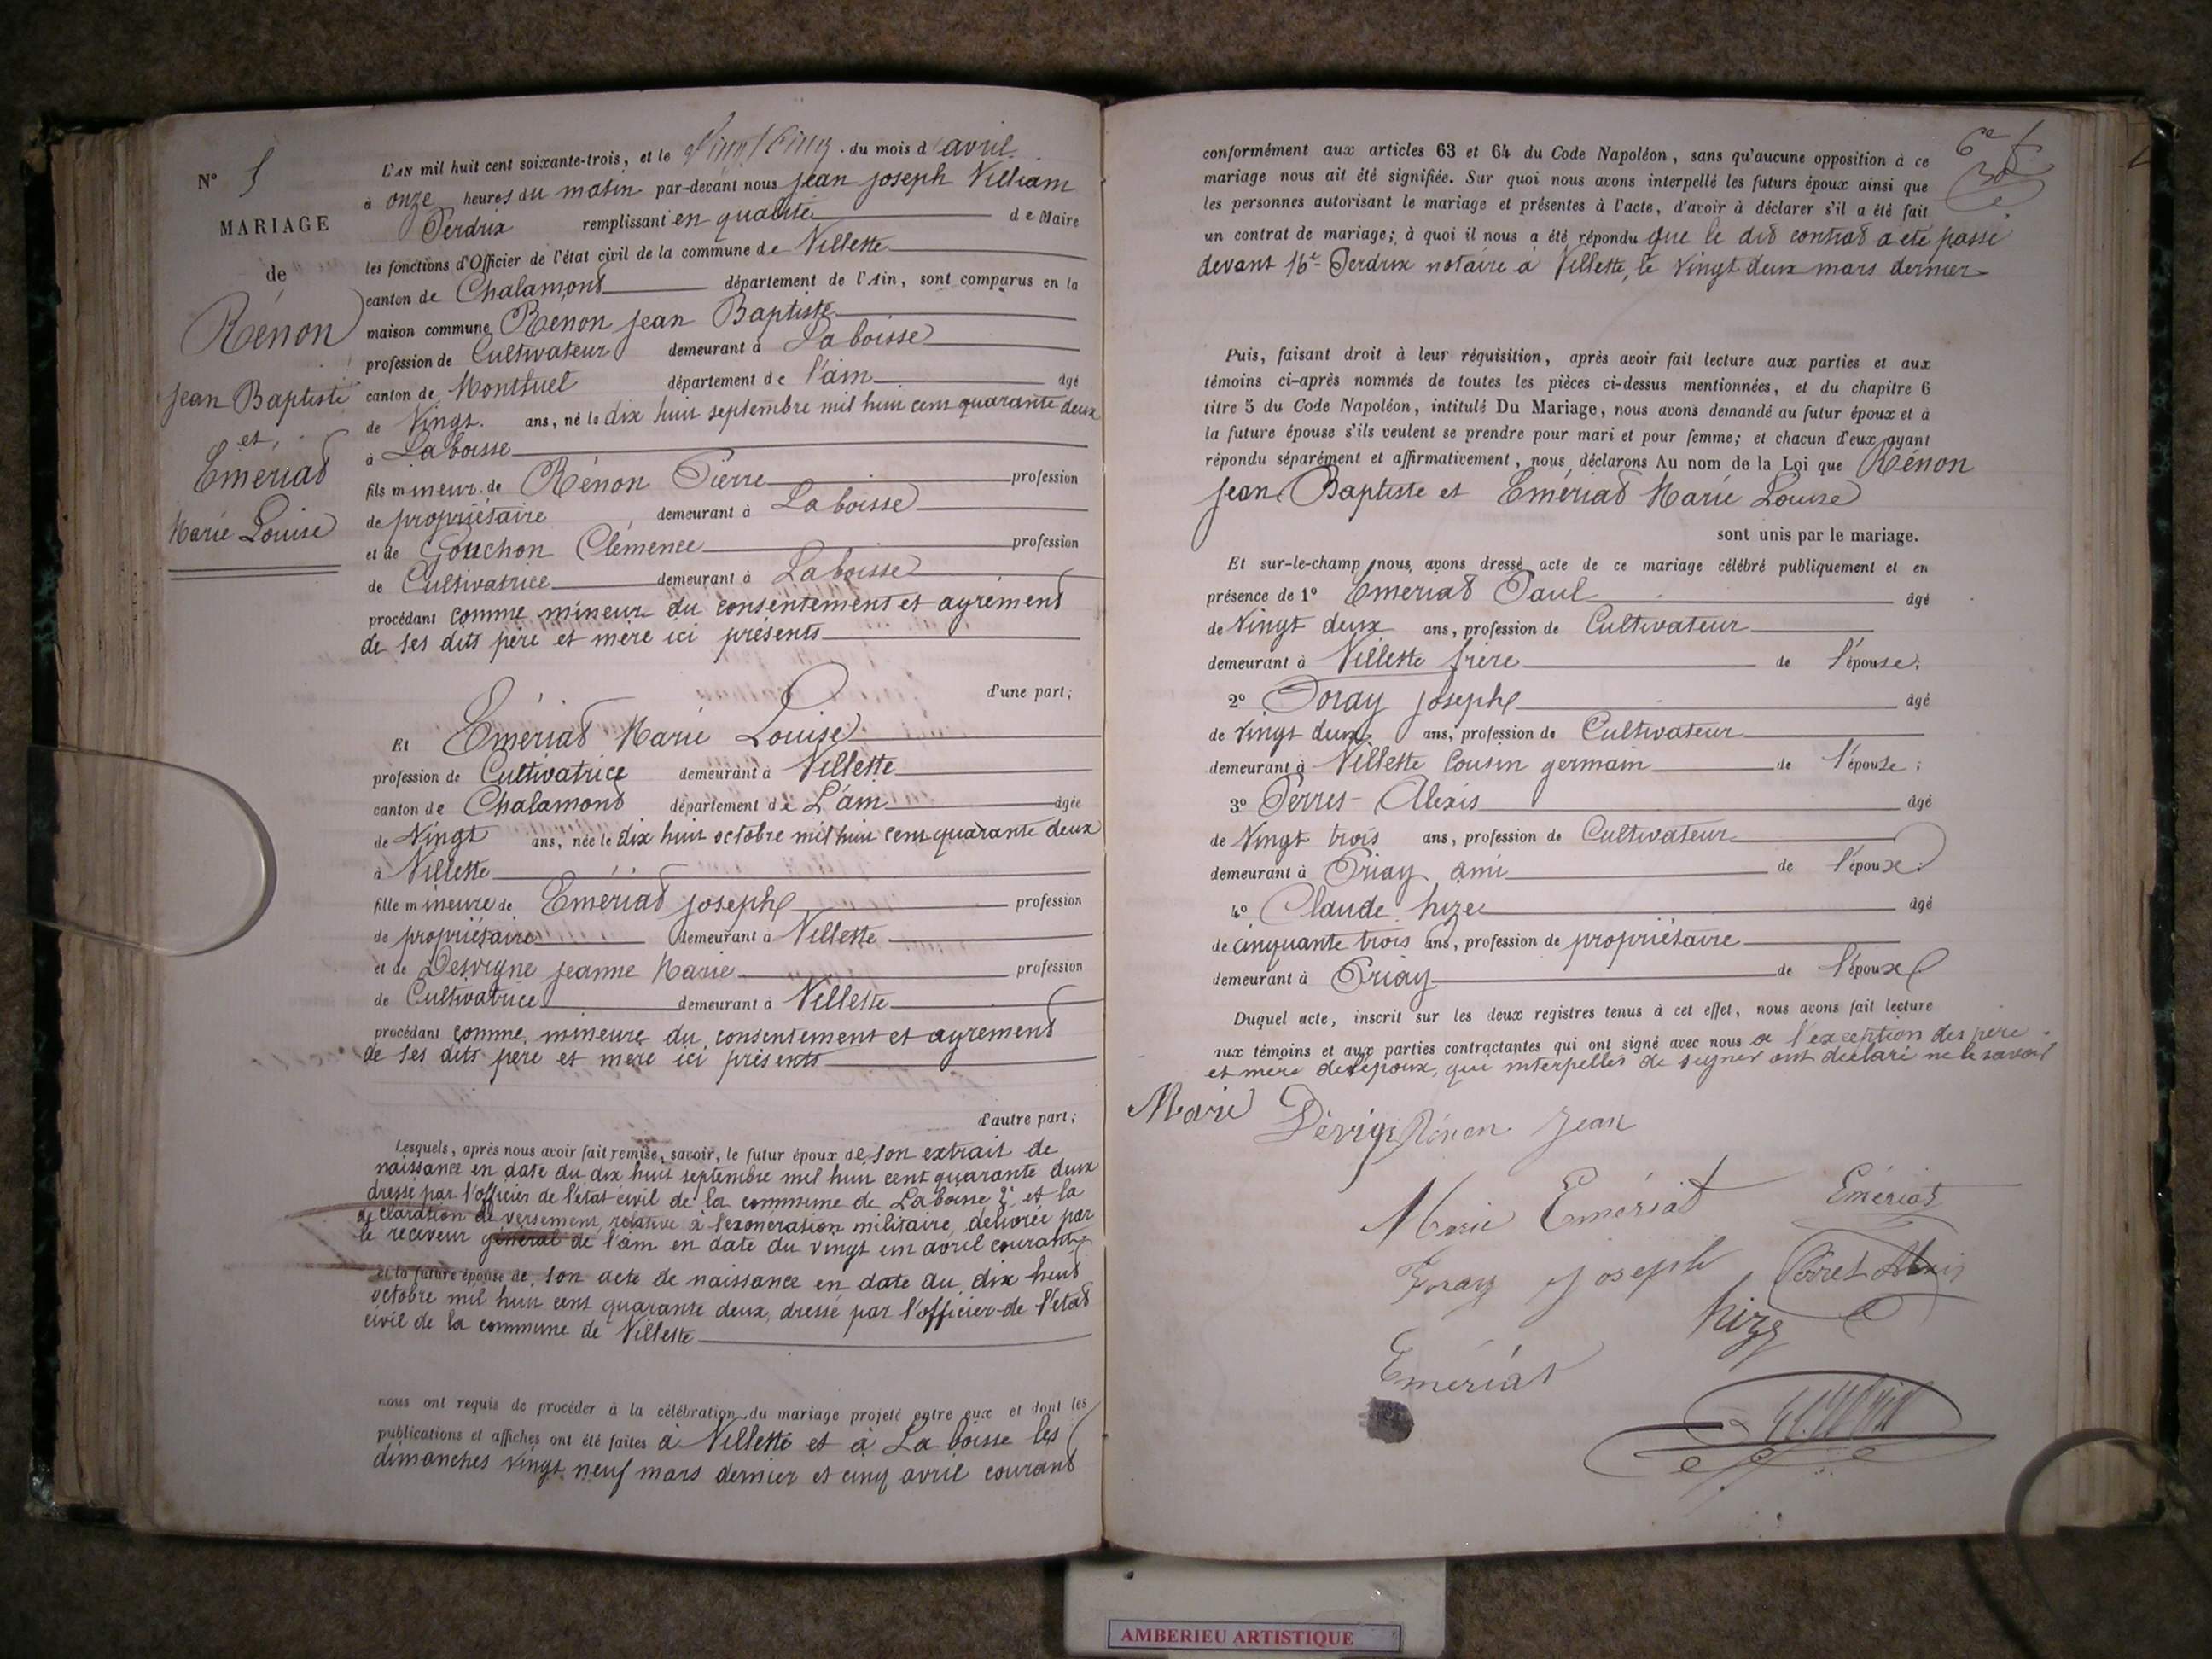 N° 5
MARIAGE
de
Rénon
Jean Baptiste
et
Emériat
Marie Louise
L'AN mil huit cent soixante-trois, et le vingt cinq du mois d'avril
à onze heures du matin par-devant nous Jean Joseph William
Perdrix remplissant en qualité de Maire
les fonctions d'Officier de l'état civil de la commune de Villette
canton de Chalamont département de l'Ain, sont comparus en la
maison commune Rénon Jean Baptiste
profession de Cultivateur demeurant à La boisse
canton de Montluel département de l'ain âgé
de Vingt ans, né le dix huit septembre mil huit cent quarante deux
à La boisse
fils mineur de Rénon Pierre profession
de propriétaire demeurant à La boisse
et de Gouchon Clémence profession
de Cultivatrice demeurant à La boisse
procédant comme mineur du consentement et agrément
de ses dits père et mère ici présents
d'une part;
Et Emériat Marie Louise
profession de Cultivatrice demeurant à Villette
canton de Chalamont département de L'ain âgée
de Vingt ans, née le dix huit octobre mil huit cent quarante deux
à Villette
fille mineure de Emériat Joseph profession
de propriétaire demeurant à Villette
et de Desvigne Jeanne Marie profession
de Cultivatrice demeurant à Villette
procédant comme mineure du consentement et agrément
de ses dits père et mère ici présents
d'autre part;
Lesquels, après nous avoir fait remise, savoir, le futur époux de son extrait de
naissance en date du dix huit septembre mil huit cent quarante deux
dressé par l'officier de l'état civil de la commune de La boisse 2° et la
déclaration de versement, relative à l'exonération militaire, délivrée par
le receveur général de l'ain en date du vingt un avril courant
et la future épouse de son acte de naissance en date du dix huit
octobre mil huit cent quarante deux, dressé par l'officier de l'état
civil de la commune de Villette
nous ont requis de procéder à la célébration du mariage projeté entre eux et dont les
publications et affiches ont été faites à Villette et à La boisse les
dimanches vingt neuf mars dernier et cinq avril courant
conformément aux articles 63 et 64 du Code Napoléon, sans qu'aucune opposition à ce
mariage nous ait été signifiée. Sur quoi nous avons interpellé les futurs époux ainsi que
les personnes autorisant le mariage et présentes à l'acte, d'avoir à déclarer s'il a été fait
un contrat de mariage; à quoi il nous a été répondu que le dit contrat a été passé
devant Me Perdrix notaire à Villette, le vingt deux mars dernier
Puis, faisant droit à leur réquisition, après avoir fait lecture aux parties et aux
témoins ci-après nommés de toutes les pièces ci-dessus mentionnées, et du chapitre 6
titre 5 du Code Napoléon, intitulé Du Mariage, nous avons demandé au futur époux et à
la future épouse s'ils veulent se prendre pour mari et pour femme; et chacun d'eux ayant
répondu séparément et affirmativement, nous déclarons Au nom de la Loi que Rénon
Jean Baptiste et Emériat Marie Louise
sont unis par le mariage.
Et sur-le-champ nous avons dressé acte de ce mariage célébré publiquement et en
présence de 1° Emériat Paul âgé
de Vingt deux ans, profession de Cultivateur
demeurant à Villette frère de l'épouse;
2° Joseph âgé
de vingt deux ans, profession de Cultivateur
demeurant à Villette Cousin germain de l'épouse;
3° Perret Alexis âgé
de Vingt trois ans, profession de Cultivateur
demeurant à Priay ami de l'époux;
4° Claude âgé
de cinquante trois ans, profession de propriétaire
demeurant à Priay de l'époux
Duquel acte, inscrit sur les deux registres tenus à cet effet, nous avons fait lecture
aux témoins et aux parties contractantes qui ont signé avec nous à l'exception des père
et mère de l'époux, qui interpellés de signer ont déclaré ne le savoir
Marie Dévigne Rénon Jean
Marie Emériat Emériat
Joseph Perret Alexis
Emériat
AMBERIEU ARTISTIQUE